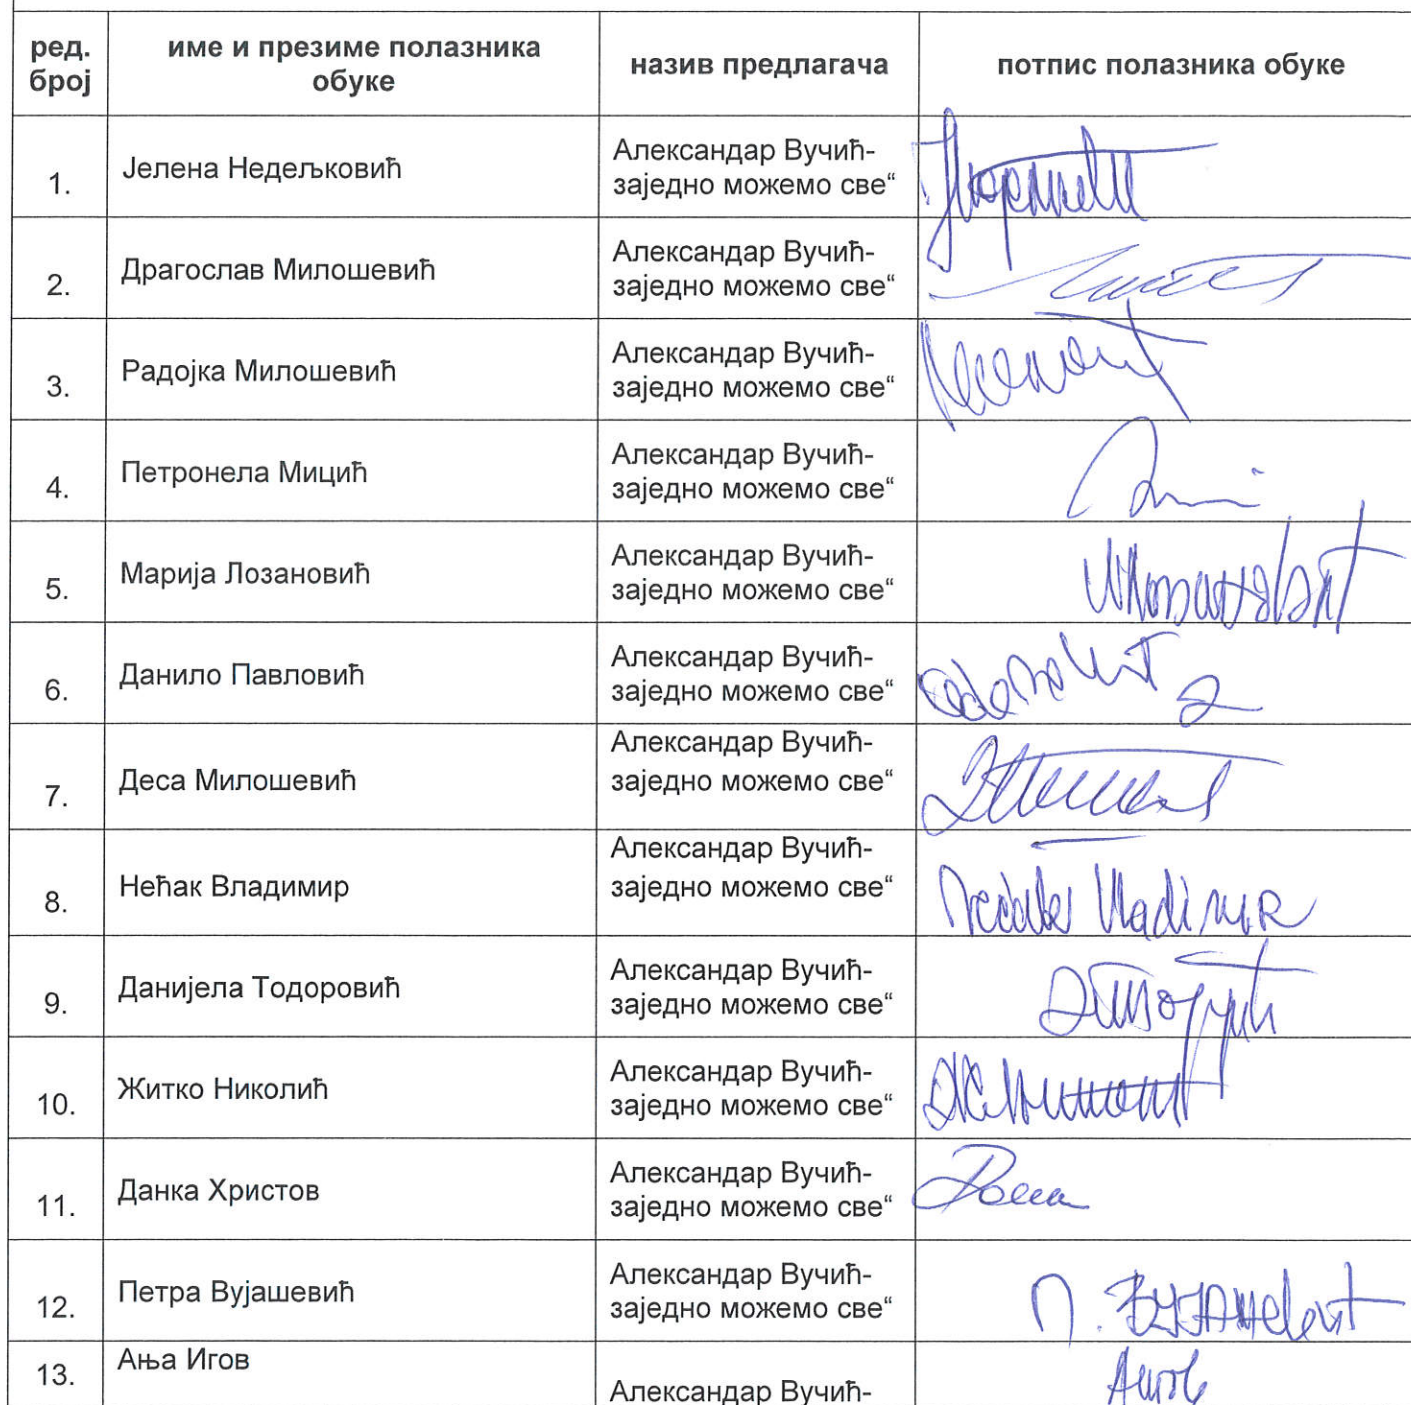 ред.
број
име и презиме полазника
обуке
назив предлагача
потпис полазника обуке
1.
Јелена Недељковић
Александар Вучић-
заједно можемо све“
2.
Драгослав Милошевић
Александар Вучић-
заједно можемо све“
3.
Радојка Милошевић
Александар Вучић-
заједно можемо све“
4.
Петронела Мицић
Александар Вучић-
заједно можемо све“
5.
Марија Лозановић
Александар Вучић-
заједно можемо све“
6.
Данило Павловић
Александар Вучић-
заједно можемо све“
7.
Деса Милошевић
Александар Вучић-
заједно можемо све“
8.
Нећак Владимир
Александар Вучић-
заједно можемо све“
9.
Данијела Тодоровић
Александар Вучић-
заједно можемо све“
10.
Житко Николић
Александар Вучић-
заједно можемо све“
11.
Данка Христов
Александар Вучић-
заједно можемо све“
12.
Петра Вујашевић
Александар Вучић-
заједно можемо све“
13.
Ања Игов
Александар Вучић-